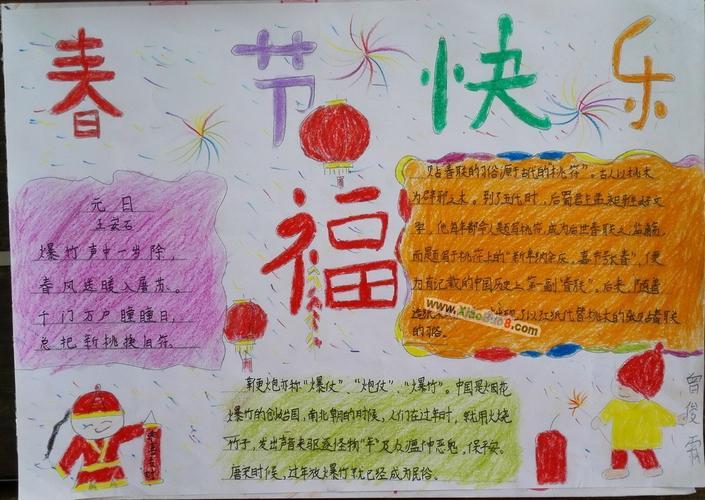 春节快乐
福
元日
王安石
爆竹声中一岁除,
春风送暖入屠苏。
千门万户瞳瞳日,
总把新桃换旧符。
贴春联的习俗源于古代的"桃符"。古人以桃木
为辟邪之木。到了五代时,后蜀君主孟昶
字,他每年都命人题写桃符,成为后世春联之
而题写于桃符上的"新年纳余庆,嘉节号长春",便
为有记载的中国历史上第一副"春联"。后来,随着
造纸 出现了以红纸代替桃木的张贴春联
的习俗。
www.xiaobao8.com
爆竹亦称"爆仗"、"炮仗"、"爆竹"。中国是烟花
爆竹的创始国,南北朝的时候,人们在过年时,就用火烧
竹子,发出声音来驱逐怪物"年"及众瘟神恶鬼,保平安。
唐宋时候,过年放爆竹就已经成为民俗。
曾俊